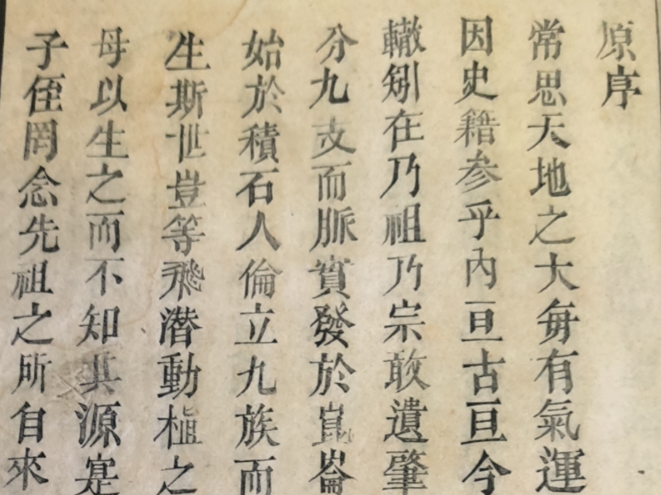 原序
常思天地之大每有氣運
因史籍参乎內亘古亘今
轍矧在乃祖乃宗敢遺肇
分九支而脈實發於崑崙
始於積石人倫立九族而
生斯世豈等飛潜動植之
母以生之而不知其源寔
子侄罔念先祖之所自來